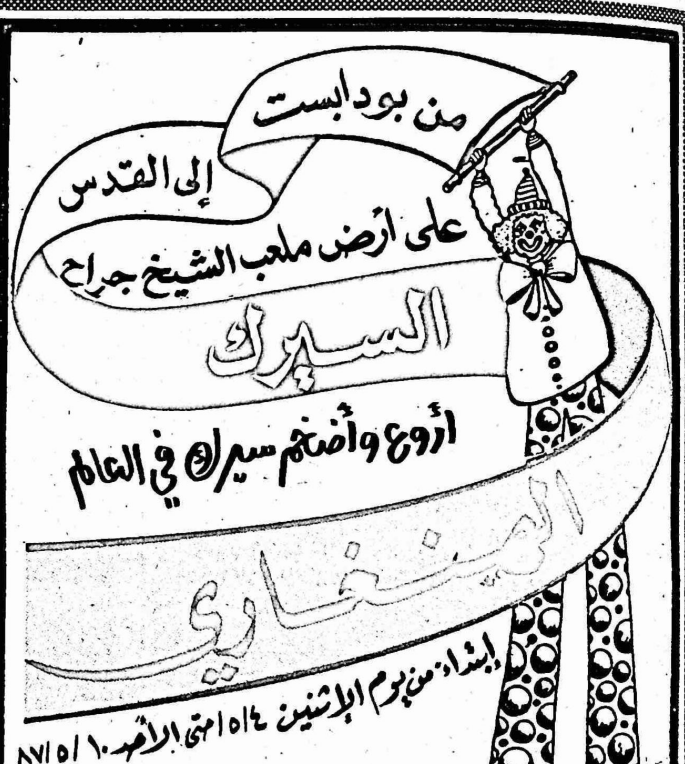 من بودابست
إلى القدس
على أرض ملعب الشيخ جراح
السيرك
أروع وأضخم سيرك في العالم
الهنغاري
إبتداء من يوم الإثنين ٥/٤ حتى الأحد ٨٧/٥/١٠